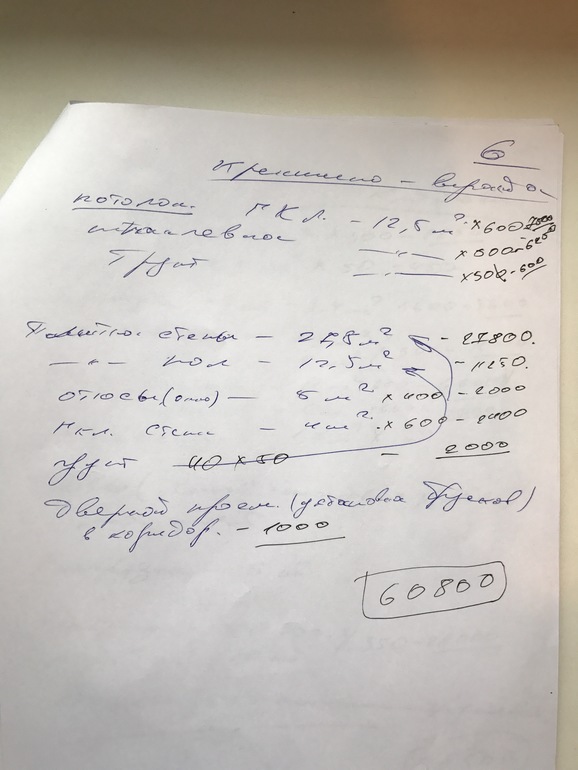 6
Крекшино - веранда
потолок. ГКЛ. - 12,5 м² × 600 - 7500
шпаклевка —"— × 500 -
Грунт —"— × 50 - 600
Плитка стены - 27,8 м² - 27800.
—"— пол - 12,5 м² - 11250.
откосы (окно) — 5 м² × 400 - 2000
гкл. стены - 4 м². × 600 - 2400
грунт 40 × 50 - 2000
Дверной проем. (установка брусков)
в коридор. - 1000
60800